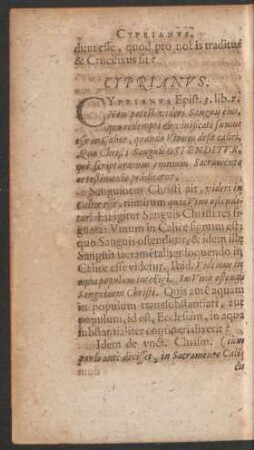 CYPRIANVS.
dum esse, quod pro nobis traditus
& Crucifixus sit?
CYPRIANVS.
CYPRIANVS Epist. 3. lib. 2.
Non potest videri Sanguis eius,
quo redempti & vivificati sumus
esse in Calice, quando Vinum desit calici,
Quo Christi Sanguis OSTENDITVR,
qui Scripturarum omnium Sacramento
ac testimonio prædicetur.
Sanguinem Christi ait, videri in
Calice esse, nimirum quia Vino
Est igitur Sanguis Christi res si-
gnata: Vinum in Calice signum est,
quo Sanguis ostenditur, & idem ille
Sanguis sacramētaliter loquendo in
Calice esse videtur. Ibid. Videmus in
aqua populum intelligi. In Vino ostendi
Sanguinem Christi. Quis autē aquam
in populum transsubstantiari, aut
populum, id est, Ecclesiam, in aqua
substantialiter contineri dixerit?
Idem de vnct. Chrism. (cum
paulo ante dixisset, in Sacramento Calicis